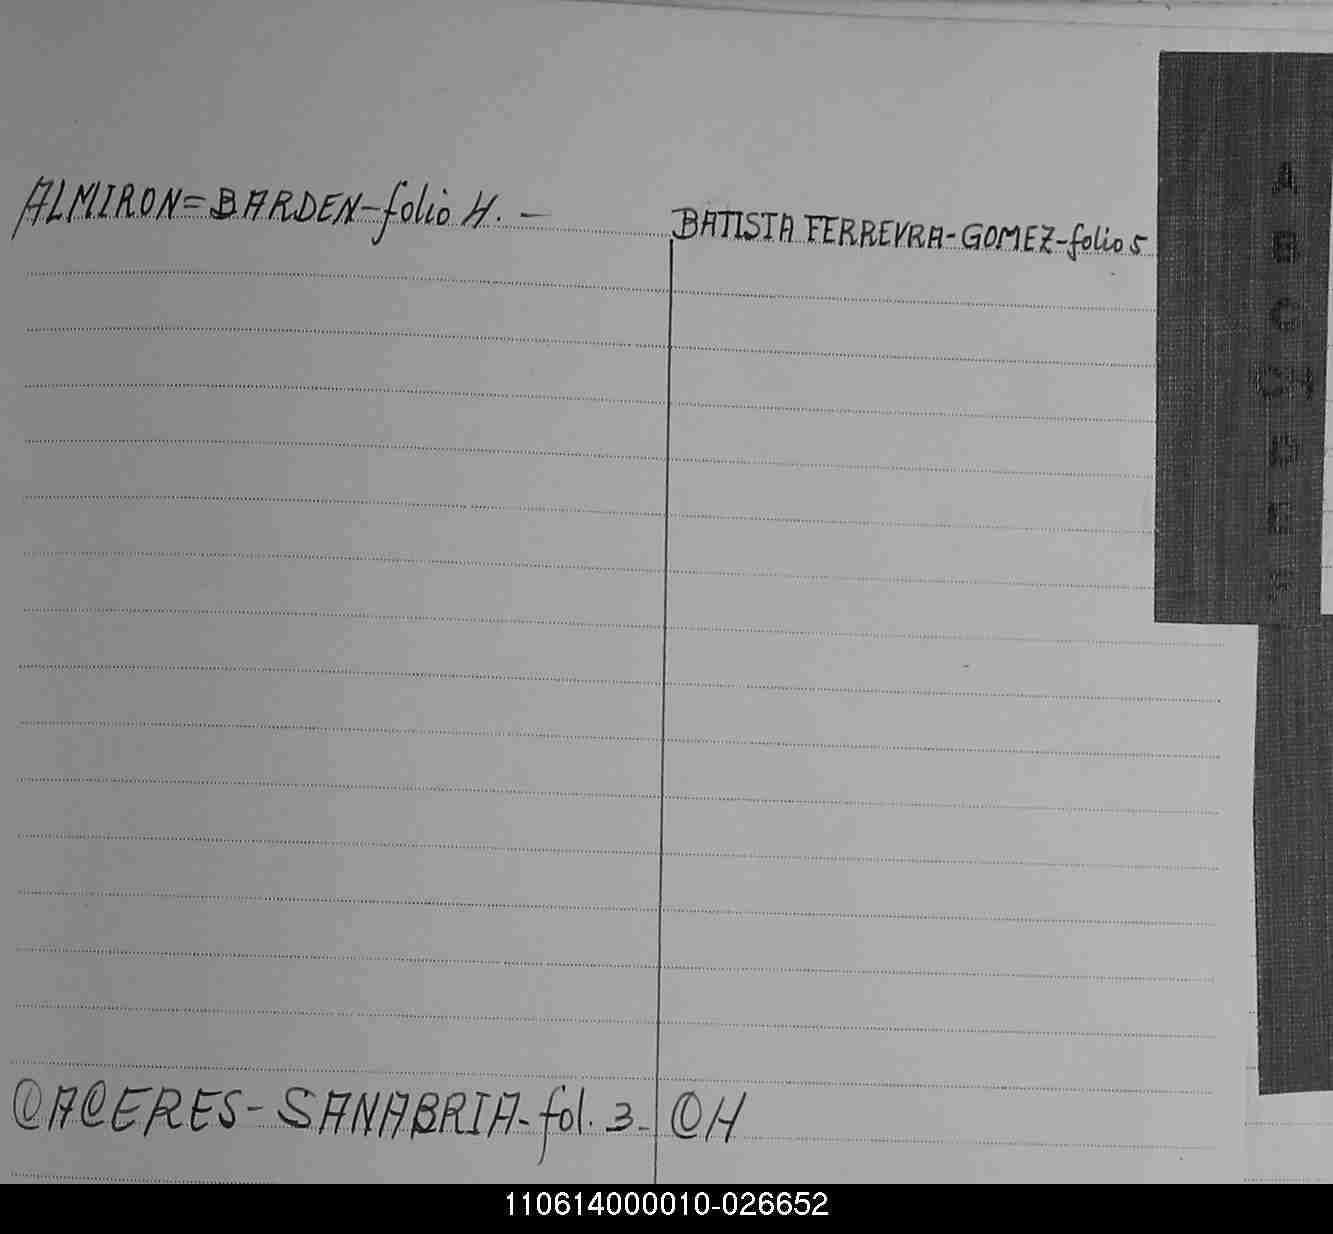 ALMIRON=BARDEN-folio 4.-
BATISTA FERREYRA-GOMEZ-folio 5
A
B
C
CH
D
E
F
CACERES-SANABRIA-fol. 3.-
CH
110614000010-026652